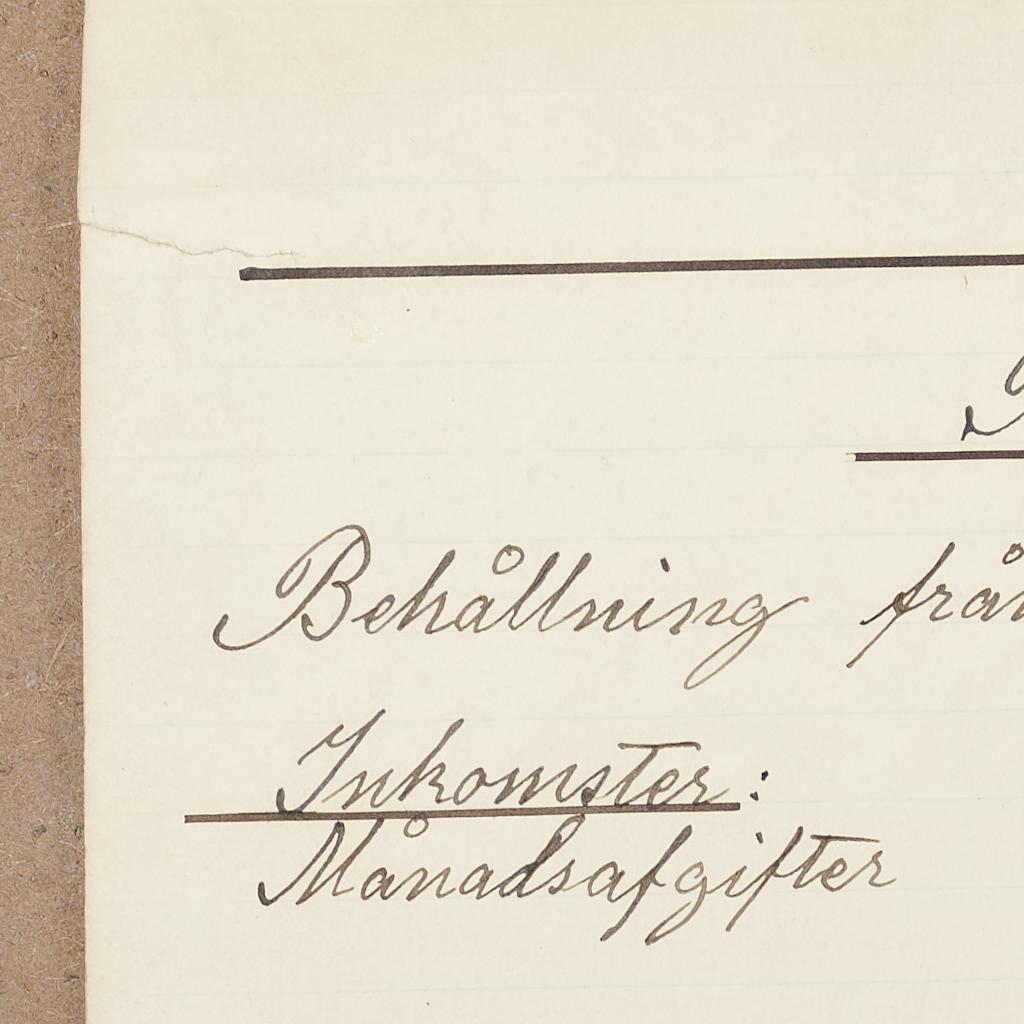 Behållning från
Inkomster:
Månadsafgifter